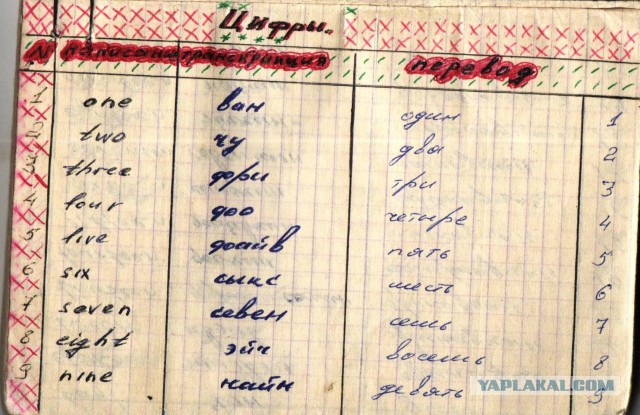 Цифры.
№ написание транскрипция перевод
1 one ван один 1
2 two чу два 2
3 three фри три 3
4 four фоо четыре 4
5 five фоайв пять 5
6 six сыкс шесть 6
7 seven севен семь 7
8 eight эйч восемь 8
9 nine найн девять 9
YAPLAKAL.COM